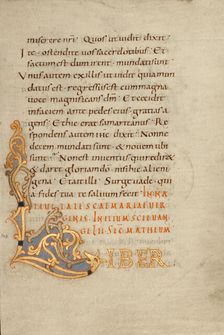 misererenri · Quos utuidit dixit·
Ite ostendite uossacerdotibus· Et
factum est dum irent · mundati sunt
Unus autem exillis · ut uidit quia mun
datus est · regressus est cummagna
uoce magnificans dm̄ · Et cecidit
infaciem ante pedes eius · gratias a
gens · Et hic erat samaritanus · Res
pondens autem ihc dixit · Nonne
decem mundati sunt · & nouem ubi
sunt · Non est inuentus qui redir&
& dar& gloriam dō · nisi hic alieni
gena · Et ait illi · Surge uade · qui
a fides tua te saluum fecit · IN NA
GINIS · INITIUM SCI EUAN
GELII SEC̄ MATHEUM
LIBER